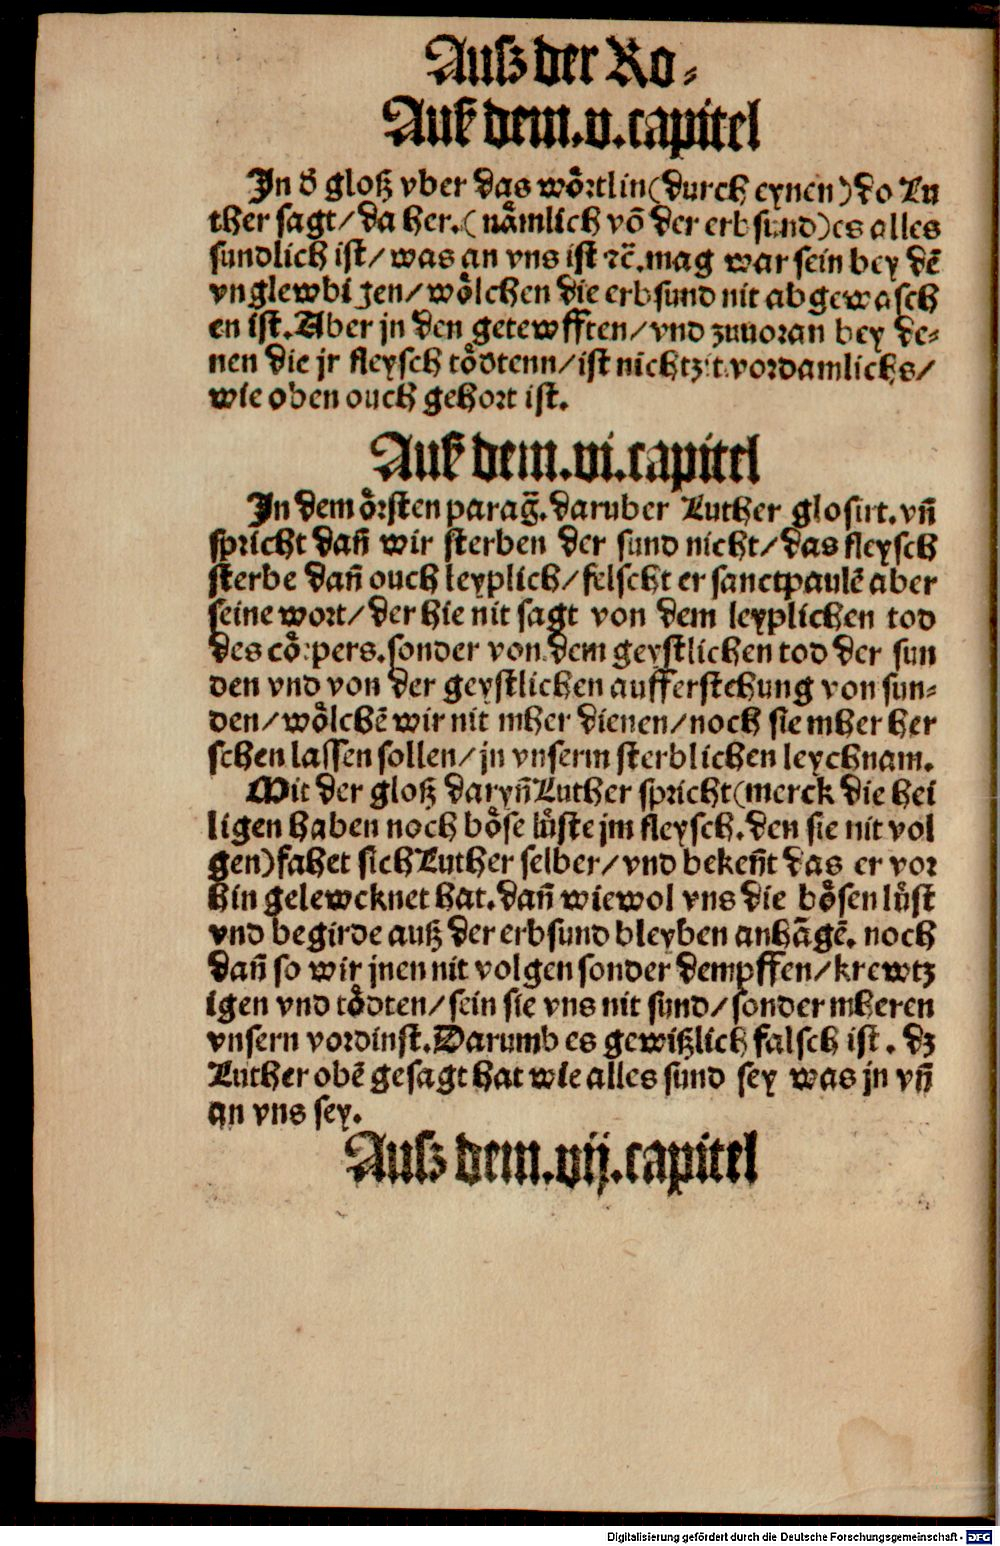 Ausz der Ro⸗
Auß dem.v.capitel
In d̕ gloß vber das wörtlin(durch eynen)do Lu
ther sagt/da her.(nämlich võ der erbsund)es alles
sundlich ist/was an vns ist ꝛc̃.mag war sein bey dẽ
vnglewbigen/wölchen die erbsund nit abgewasch
en ist.Aber jn den getewfften/vnd zuuoran bey de⸗
nen die jr fleysch tödtenn/ist nichtzit vordamlichs/
wie oben ouch gehort ist.
Auß dem.vi.capitel
In dem örsten parag̃.daruber Luther glosirt.vñ
spricht dañ wir sterben der sund nicht/das fleysch
sterbe dañ ouch leyplich/felscht er sanct paulẽ aber
seine wort/der hie nit sagt von dem leyplichen tod
des cörpers.sonder von dem geystlichen tod der sun
den vnd von der geystlichen aufferstehung von sun⸗
den/wölchẽ wir nit mher dienen/noch sie mher her
schen lassen sollen/jn vnserm sterblichen leychnam.
Mit der gloß daryñ Luther spricht(merck die hei
ligen haben noch böse lüste jm fleysch.den sie nit vol
gen)fahet sich Luther selber/vnd bekeñt das er vor
hin gelewcknet hat.dañ wiewol vns die bösen lüst
vnd begirde auß der erbsund bleyben anhãgẽ. noch
dañ so wir jnen nit volgen sonder dempffen/krewtz
igen vnd tödten/sein sie vns nit sund/sonder mheren
vnsern vordinst.Darumb es gewißlich falsch ist. dz
Luther obẽ gesagt hat wie alles sund sey was jn vñ
an vns sey.
Ausz dem.vij.capitel
Digitalisierung gefördert durch die Deutsche Forschungsgemeinschaft - DFG